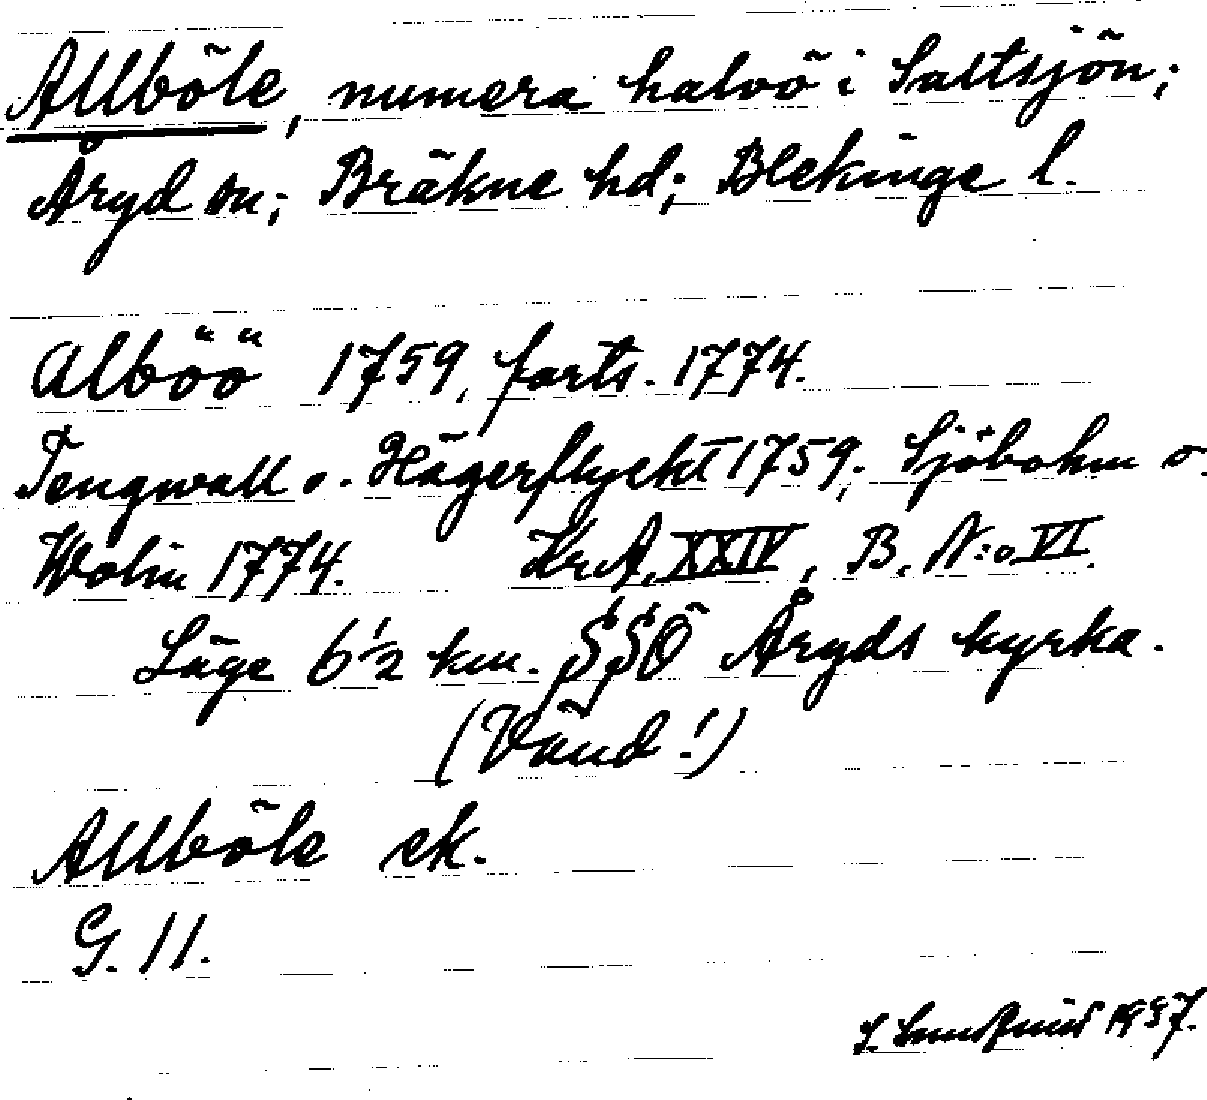 Allböle, numera halvö i Saltsjön;
Åryd sn; Bräkne hd; Blekinge l.
Alböö 1759, farts. 1774.
Tengwall o. Hägerflycht 1759; Sjöbohm o.
Wolin 1774. Kr.A. XXIV, B. N:o VI.
Läge 6 1/2 km. SSÖ Åryds kyrka.
(Vänd!)
Allböle ek.
G. 11.
1937.